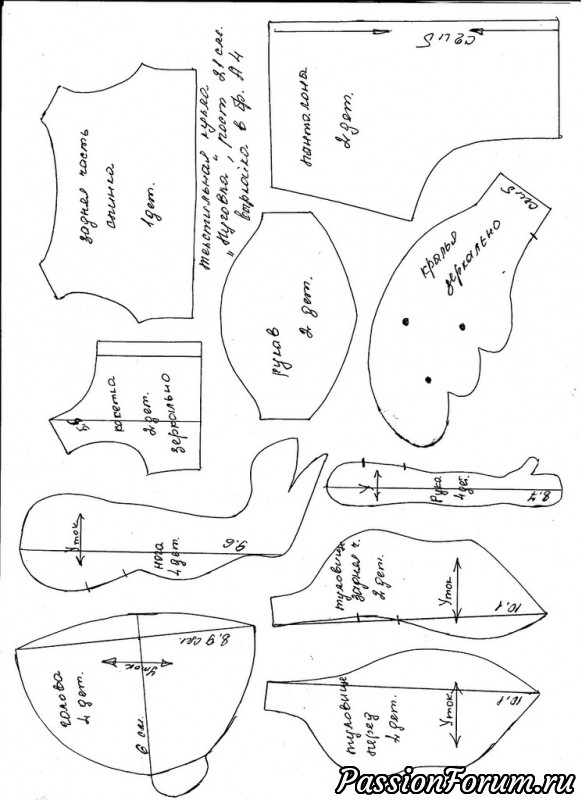 текстильная кукла
„Пуговка", рост 21 см.
выкройка в ф. А4
задняя часть
спинка
1 дет.
сгиб
панталоны
2 дет.
сгиб
крылья
зеркально
рукав
2 дет.
кокетка
2 дет.
зеркально
уток
нога
4 дет.
9.6
У
рука
4 дет.
8,7
туловище
задняя ч.
2 дет.
Уток
10,1
голова
4 дет.
8,9 см.
уток
6 см.
туловище
перед
4 дет.
Уток
10,1
PassionForum.ru